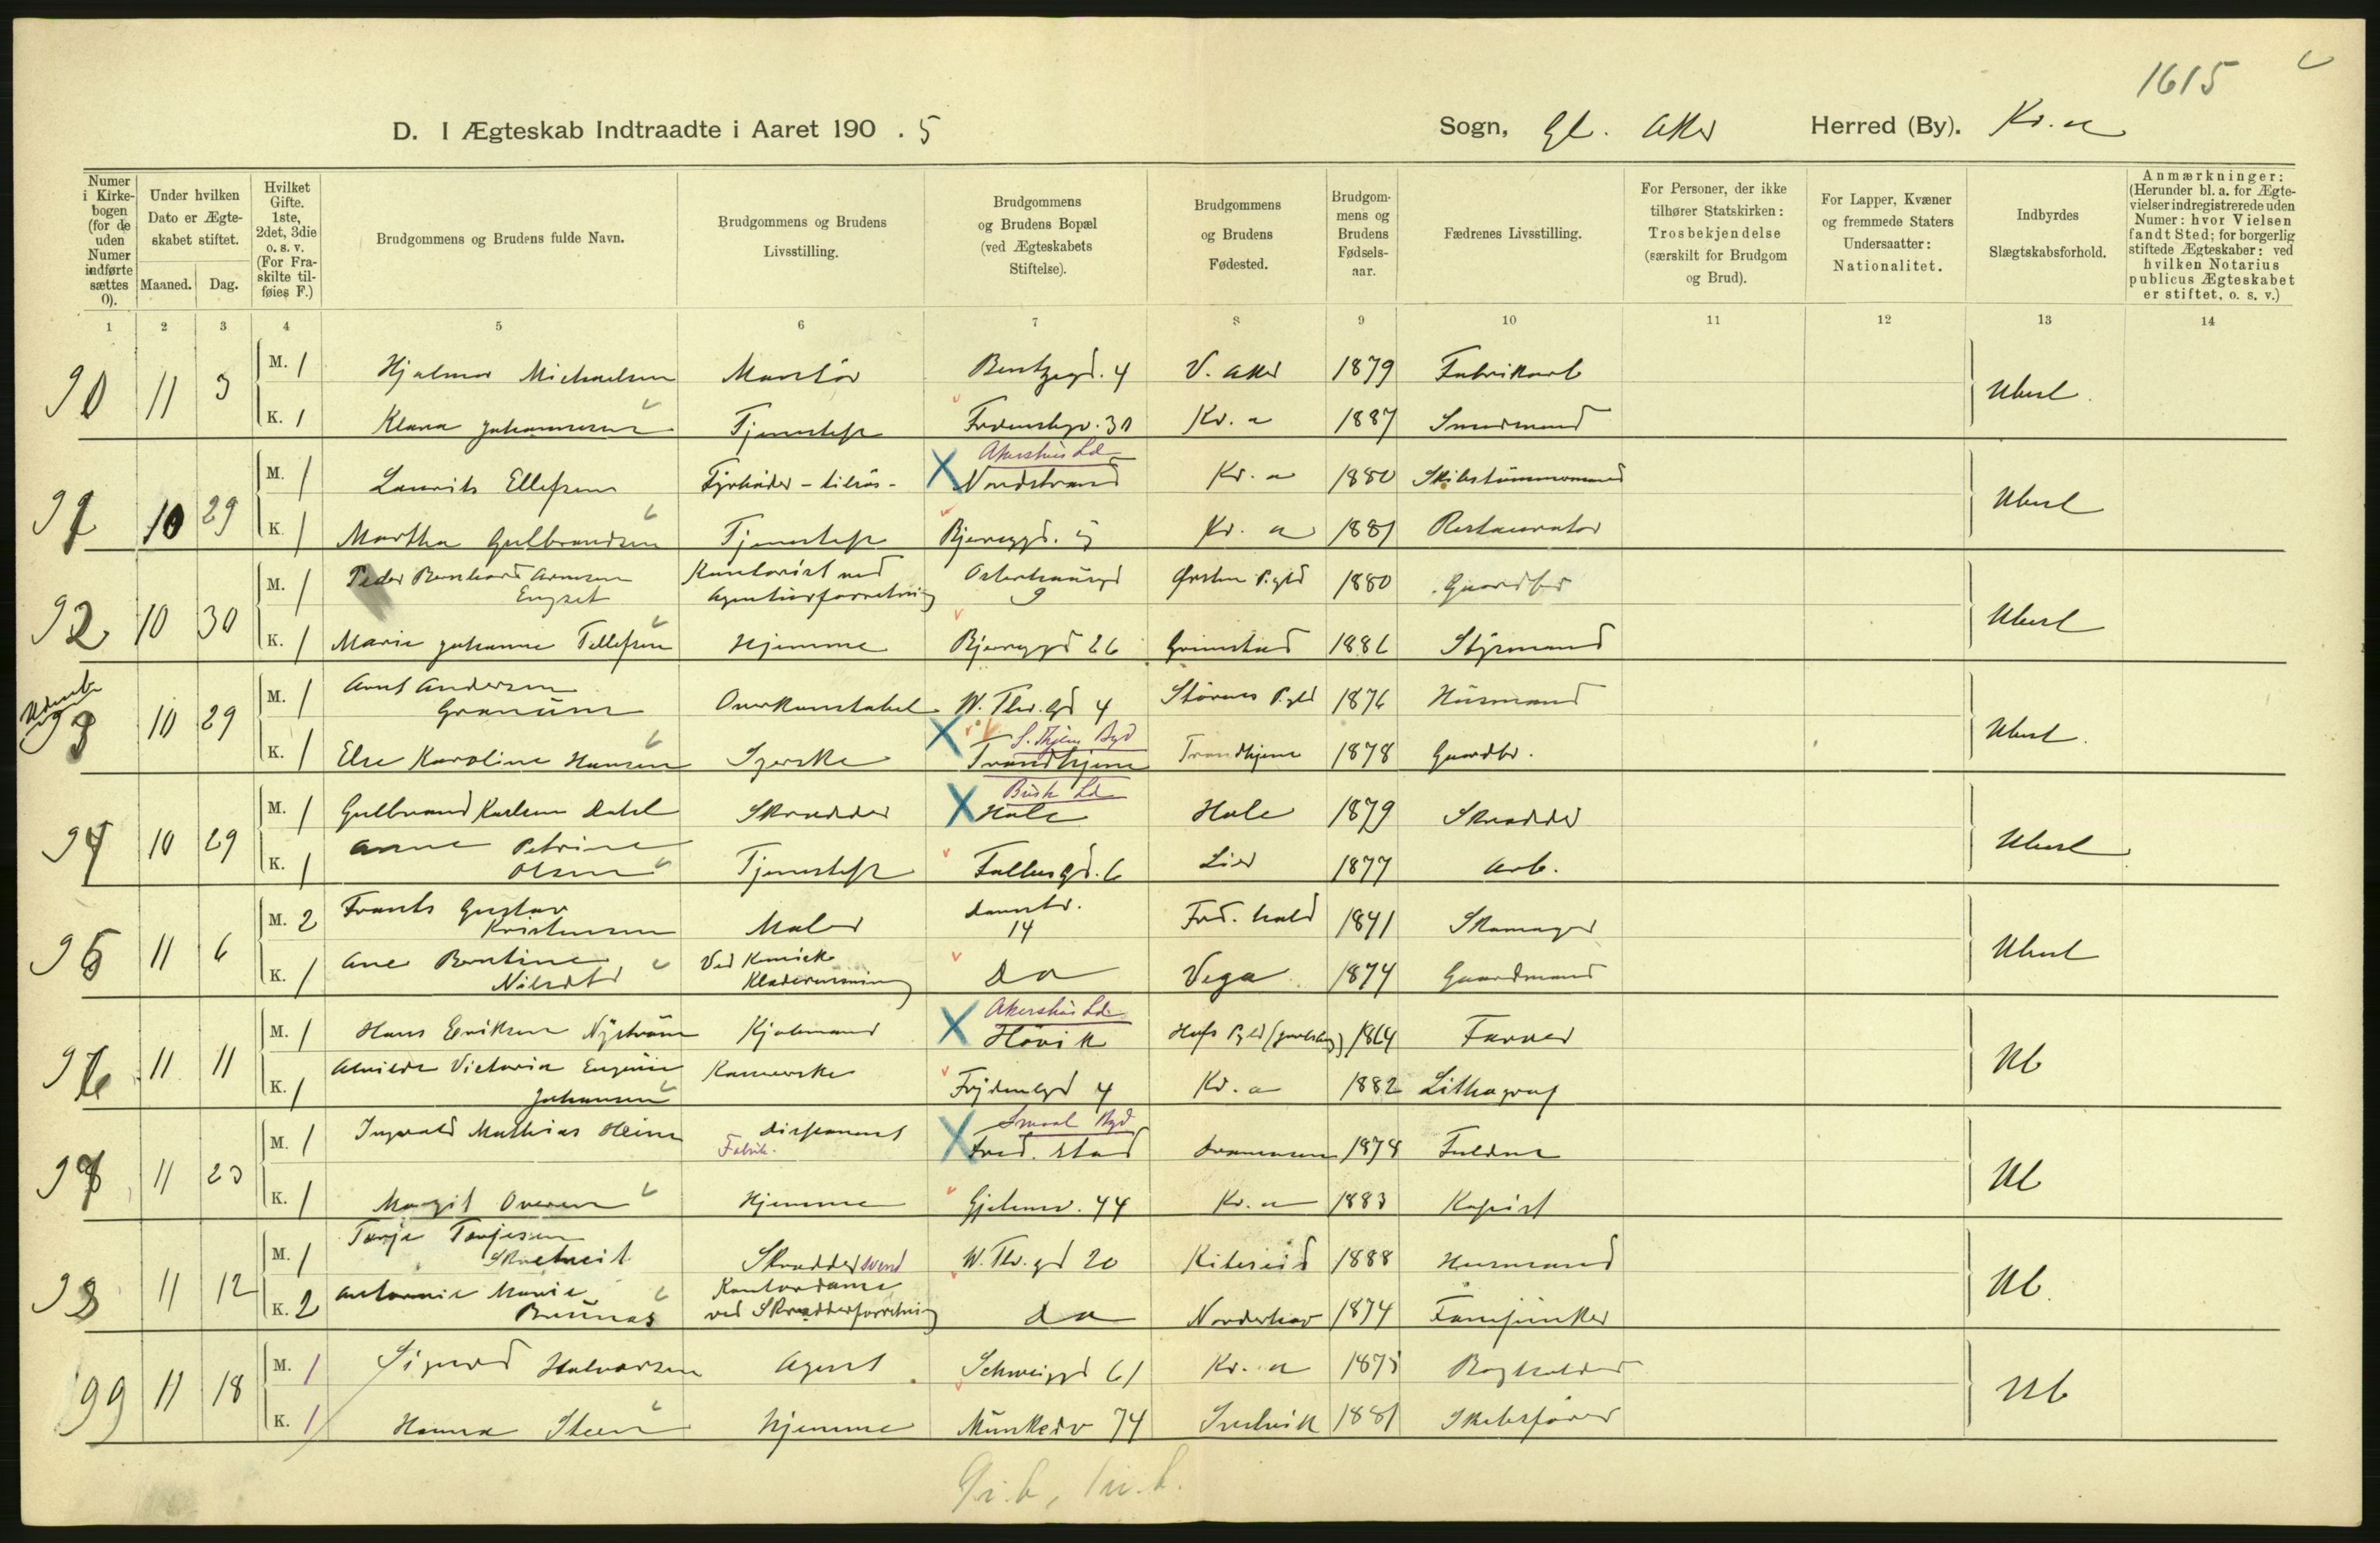 1615
D. I Ægteskab Indtraadte i Aaret 190 . 5 Sogn, Gl. Aker Herred (By). Kr.a
Numer i Kirkebogen (for de uden Numer indførte sættes 0).
Under hvilken Dato er Ægteskabet stiftet.
Maaned. Dag.
Hvilket Gifte. 1ste, 2det, 3die o. s. v. (For Fraskilte tilføies F.)
Brudgommens og Brudens fulde Navn.
Brudgommens og Brudens Livsstilling.
Brudgommens og Brudens Bopæl (ved Ægteskabets Stiftelse).
Brudgommens og Brudens Fødested.
Brudgommens og Brudens Fødselsaar.
Fædrenes Livsstilling.
For Personer, der ikke tilhører Statskirken: Trosbekjendelse (særskilt for Brudgom og Brud).
For Lapper, Kvæner og fremmede Staters Undersaatter: Nationalitet.
Indbyrdes Slægtskabsforhold.
Anmærkninger: (Herunder bl. a. for Ægtevielser indregistrerede uden Numer: hvor Vielsen fandt Sted; for borgerlig stiftede Ægteskaber: ved hvilken Notarius publicus Ægteskabet er stiftet, o. s. v.)
1 2 3 4 5 6 7 8 9 10 11 12 13 14
90 11 5 M. 1 Hjalmar Michaelsen Montör Bentzegd. 4 V. Aker 1879 Fabrikarb Ubesl.
K. 1 Klara Johannesen Tjenestepr Kr. a 1887
Akershus Ld
91 10 29 M. 1 Laurits Ellefsen Fyrböder - tilsös - Nordstrand Kr. a 1880 Skibstömmermand Ubesl
K. 1 Martha Gulbrandsen Tjenestepr Bjereggd. 5 Kr. a 1881 Restauratör
92 10 30 M. 1 Peder Bernhard Arnesen Engset Kontorist ved Agenturforretning Osterhausgd 9 Ørsten Pgld 1880 Gaardbr Ubesl
K. 1 Marie Johanne Tellefsen Hjemme Bjereggd 26 Grimstad 1886 Styrmand
93 10 29 M. 1 Arnt Andersen Granum Overkonstabel W. Thr. gd 4 Störens Pgld 1876 Husmand Ubesl.
S. Thjem Byd
K. 1 Else Karoline Hansen Syerske Trondhjem Trondhjem 1878 Gaardbr.
Busk Ld
94 10 29 M. 1 Gulbrand Karlsen Dahl Skrædder Hole Hole 1879 Skrædder Ubesl
K. 1 Anne Petrine Olsen Tjenestepr Falbesgd. 6 Lier 1877 Arb.
95 11 6 M. 2 Frants Gustav Kristensen Maler Damstr. 14 Fred. hald 1841 Skomager Ubesl
K. 1 Ane Berntine Ved Kemisk Klæderensning do Vega 1874 Gaardmand
Akershus Ld
96 11 11 M. 1 Hans Eriksen Nyström Kjolemand Hövik Hofs Pgld (Jarlsberg) 1864 Farver Ub
K. 1 Alvilde Victoria Eugenie Johansen Frydenlgd 4 Kr. a 1882 Lithograf
Smaal Byd
98 11 25 M. 1 Ingvald Mathias Heim Fabrik. disponent Fred. stad Drammen 1878 Ub
K. 1 Margit Oversen Hjemme Gjetemv. 44 Kr. a 1883 Kopist
98 11 12 M. 1 Tarje Tarjesen Skrædder svend W. Thr. gd 20 Kiteseid 1888 Husmand Ub.
K. 2 Antonnie Marie Kontordame ved Skrædderforretning do Norderhov 1874 Fanejunker
99 11 18 M. 1 Sigurd Halvorsen Agent Schweiggd 61 Kr. a 1875 Bogholder Ub
K. 1 Hanna Steen Hjemme Munkedv 74 Svelvik 1881 Skibsförer